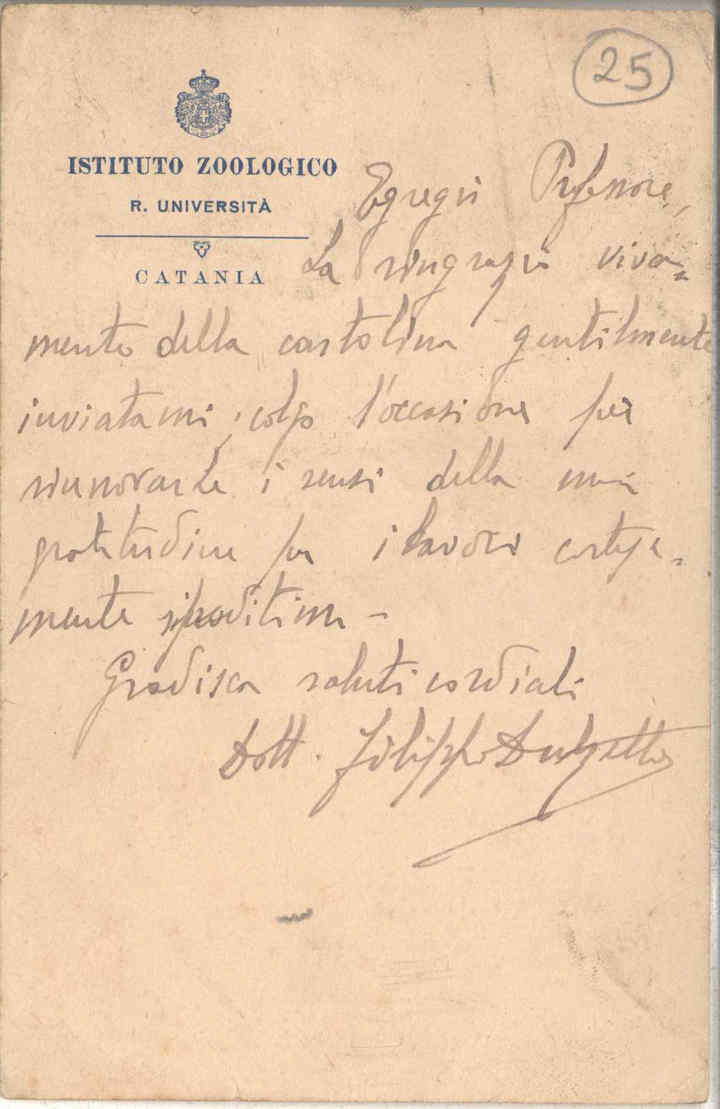 25
ISTITUTO ZOOLOGICO
R. UNIVERSITÀ
CATANIA
Egregio Professore,
La ringrazio viva-
mente della cartolina gentilmente
inviatami; colgo l'occasione per
rinnovarLe i sensi della mia
gratitudine per i lavori cortese-
mente speditimi -
Gradisca saluti cordiali
Dott. Filippo Dulzetto